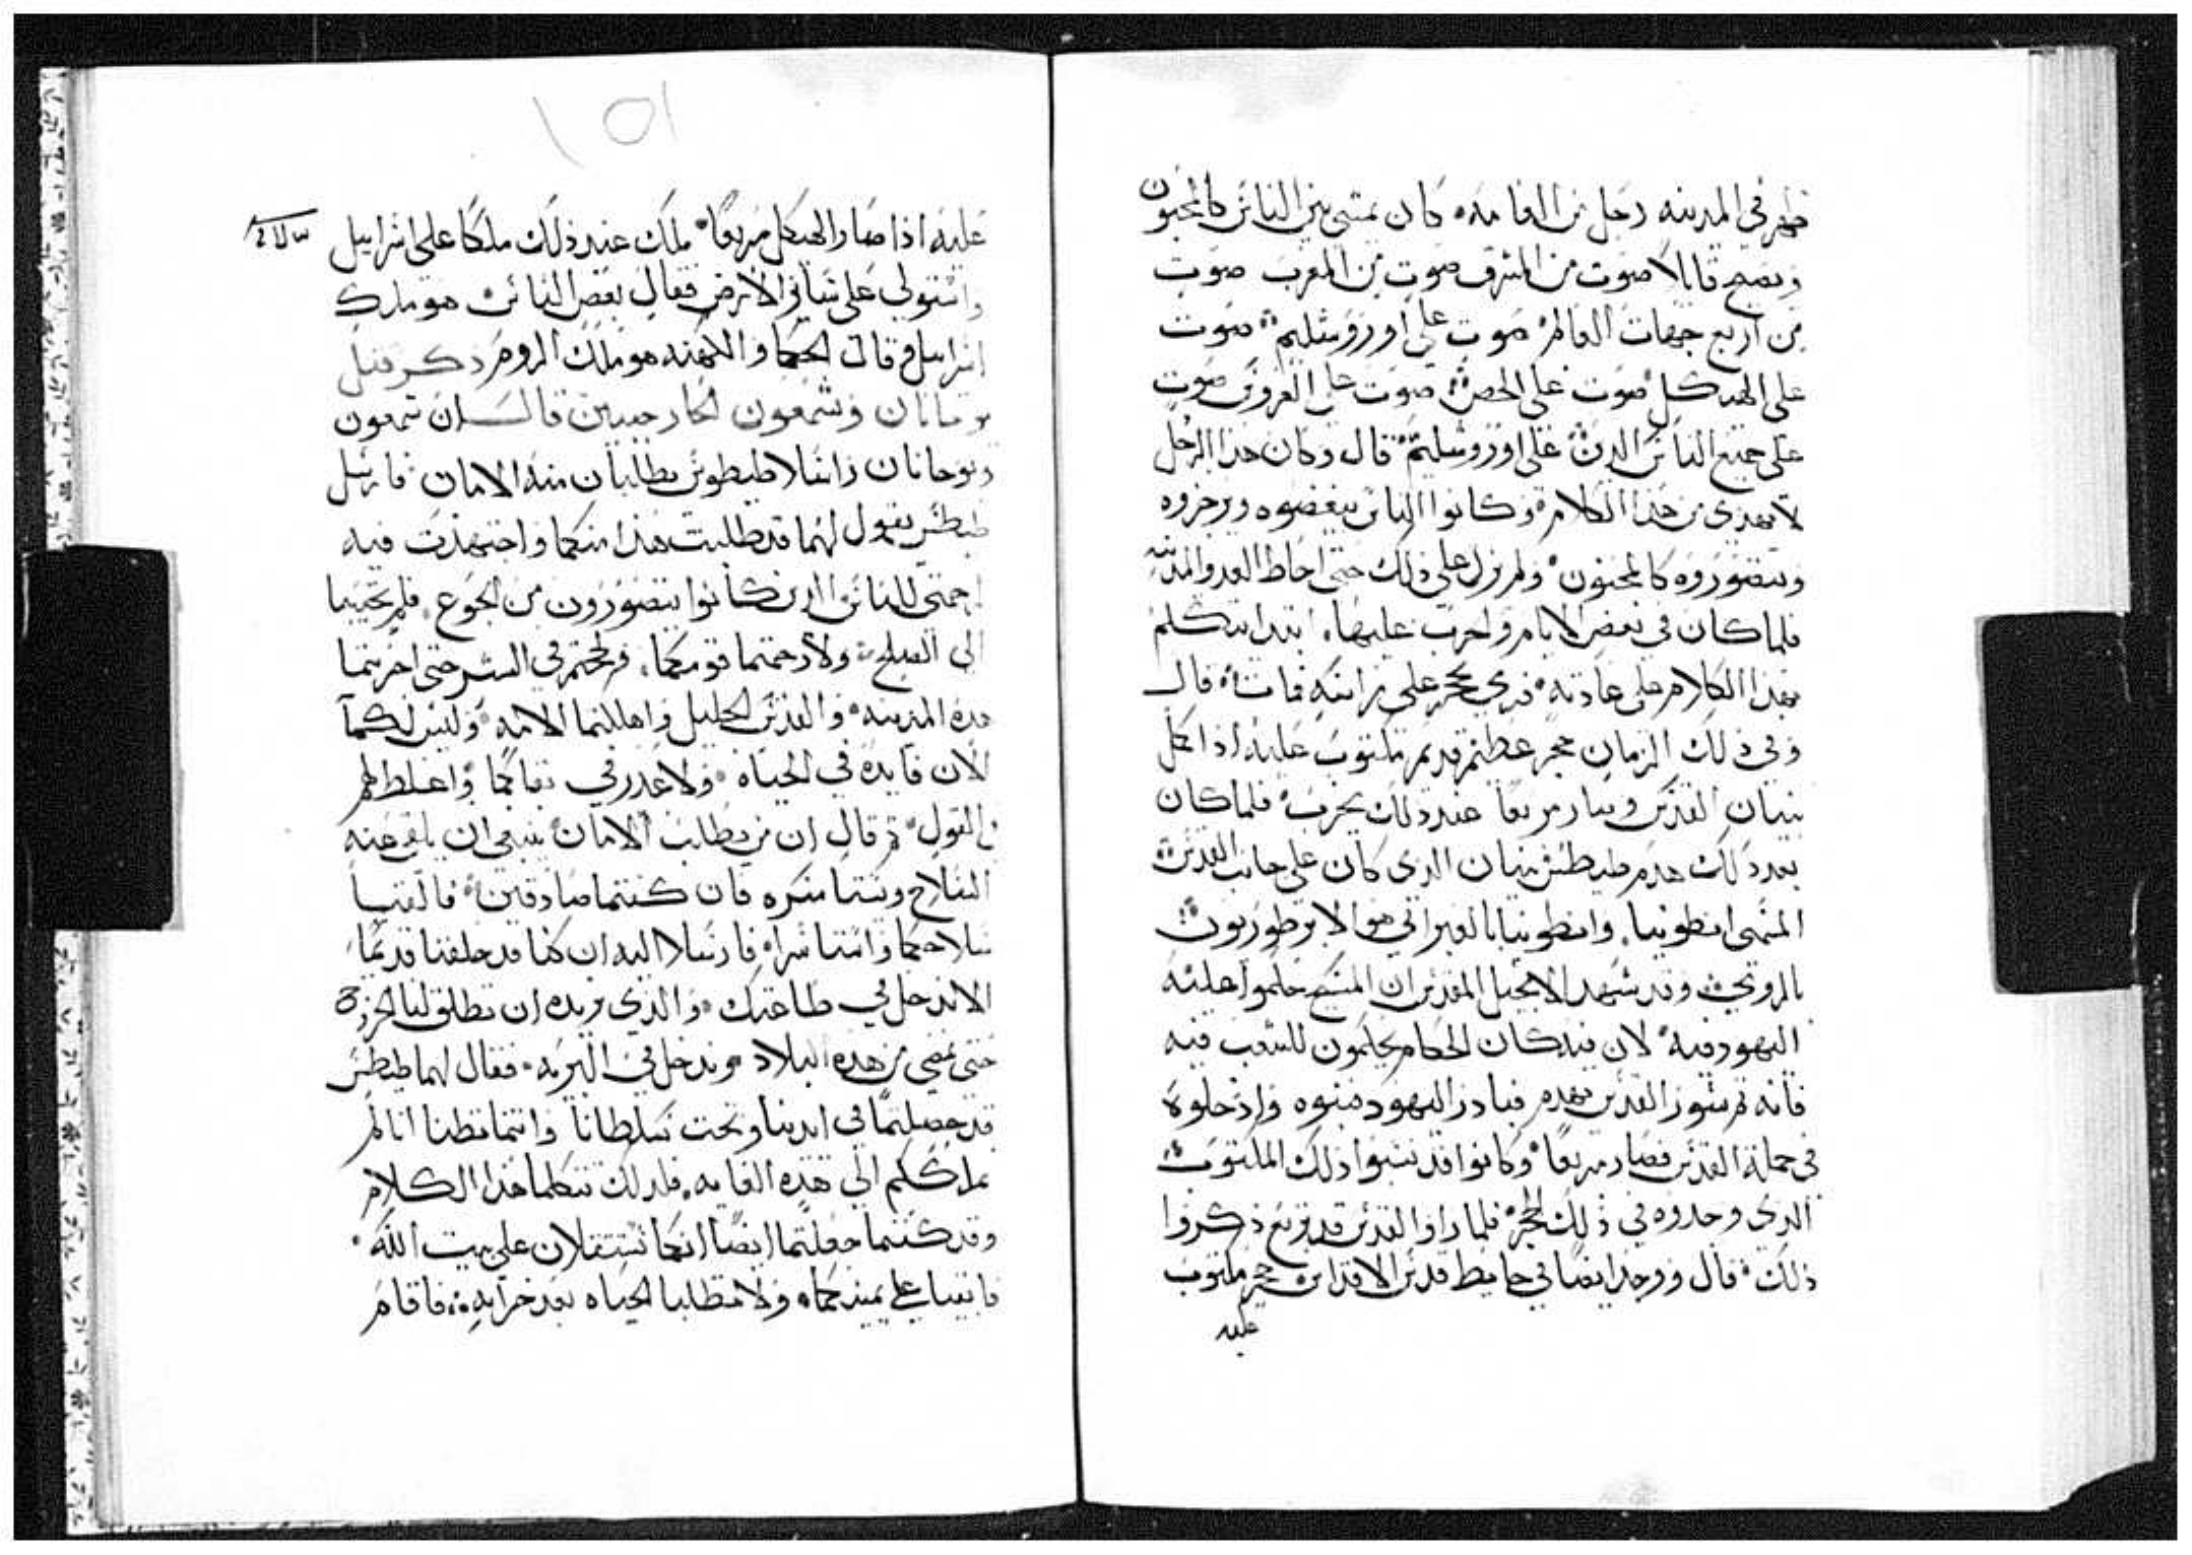 ظهر في المدينه رجل من العامه كان يمشي بين الناس كالمجنون
ويصيح قايلا صوت من المشرق صوت من المغرب صوت
من اربع جهات العالم صوت علي اورووشليم صوت
على الهيكل صوت على الحصن صوت على العروس صوت
على جميع الناس الدين على اورووشليم قال وكان هدا الرجل
لا يهدى من هدا الكلام وكانوا الناس يبغضوه ويزجروه
ويتصوروه كالمجنون ولم يزل على ذلك حتى احاط العدو المدينه
فلما كان في بعض الايام والحرب عليها ابتدا يتكلم
بهدا الكلام على عادته فرمي بحجر على راسه فمات قال
وفي ذلك الزمان حجر عظيم قديم مكتوب عليه اذا كمل
بنيان القدس وصار مربعا عند ذلك يخرب فلما كان
بعد ذلك هدم طيطش بنيان الدى كان على جانب القدس
المسمى انطونيا وانطونيا بالعبراني هو الابرطوريون
بالرومي وقد شهد الانجيل المقدس ان المسيح حكموا عليه
اليهود فيه لان فيه كان الحكام يحكمون للشعب فيه
فانه ثم سور القدس بهدم فبادر اليهود فبنوه وادخلوه
في جملة القدس فصار مربعا وكانوا قد نسيوا ذلك المكتوب
الدى وجدوه في ذلك الحجر فلما راوا القدس قد تربع ذكروا
ذلك قال ووجد ايضا في حايط قدس الاقداس حجر مكتوب
عليه
عليه اذا صار الهيكل مربعا ملك عند ذلك ملكا على اسراييل
واستولي على ساير الارض فقال بعض الناس هو ملك
اسراييل وقال الحكما والكهنه هو ملك الروم ذكر قتل
يوحانان وشمعون الخارجيين قال ان شمعون
ويوحانان راسلا طيطوس يطلبان منه الامان فارسل
طيطس يقول لهما قد طلبت هذا منكما واجتهدت فيه
لرحمتي للناس الدين كانوا يتضورون من الجوع فلم تجيبا
الى الصلح ولا رحمتما قومكما ولججتم في الشر حتى اخربتما
هده المدينه والقدس الجليل واهلكتما الامه وليس لكما
الان فايده في الحياه ولا عدر في بقاكما واغلظ لهم
في القول ثم قال ان من يطلب الامان ينبغي ان يلقى عنه
السلاح فان كنتما صادقين فالقيا
سلاحكما فارسلا اليه ان كنا قد حلفنا قديما
الا ندخل في طاعتك والذي نريده ان تطلق لنا الخروج
حتى نمضي من هده البلاد وندخل في البريه فقال لهما طيطس
قد حصلتما في ايدينا وتحت سلطانا وانتما تظنا انا لم
نملككم الى هذه الغايه فلدلك تتكلما هذا الكلام
وقد كنتما جعلتما ايضا انكما تستقتلان على بيت الله
ولا تطلبا الحياه بعد خرابه فاقام